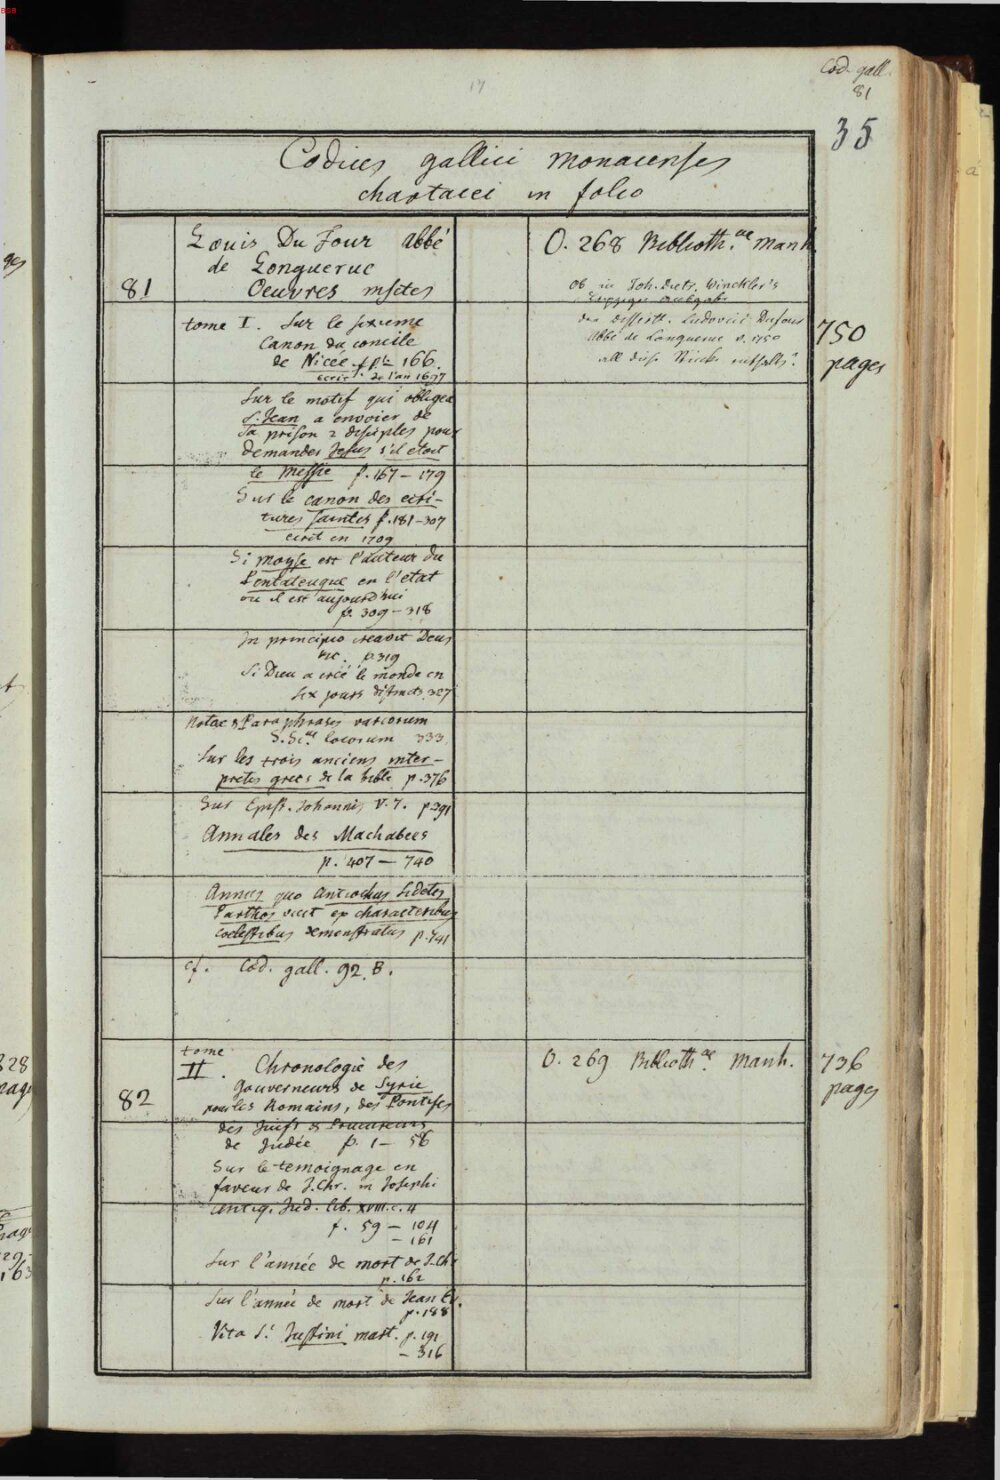 BSB
Cod. gall.
81
35
Codices gallici monacenses
chartacei in folio
81
Louis Du Four abbé
de Longuerue
Oeuvres msctes
O. 268 Biblioth.ae Manh.
ob in Joh. Dietr. Winckler's
Leipziger Ausgabe
der dissertt. Ludovici Dufour
Abbé de Longuerue v. 1750
all diese Stücke enthalten?
750
pages
tome I. Sur le sixieme
Canon du concile
de Nicée. 166.
ecrit de l'an 1697
Sur le motif qui obligea
S. Jean a envoier de
sa prison 2 disciples pour
demander Jesus s'il etoit
le Messie p. 167 - 179
Sur le canon des ecri-
tures saintes p. 181-307
ecrit en 1709
Si Moyse est l'auteur du
Pentateuque en l'etat
ou il est aujourd'hui
p. 309 - 318
In principio creavit Deus
etc. p. 319
Si Dieu a créé le monde en
six jours distincts. 327
Notae & Paraphrases variorum
S. Sc.ae locorum 333
Sur les trois anciens inter-
pretes grecs de la bible p. 376
Sur Epist. Johannis V. 7. p. 391
Annales des Machabees
p. 407 - 740
Annus quo Antiochus Sidetes
Parthos vicit ex characteribus
coelestibus demonstratus p. 741
cf. Cod. gall. 92.B.
82
tome
II. Chronologie des
Gouverneurs de Syrie
pour les Romains, des Pontifes
des Juifs & Procureurs
de Judée p. 1 - 58
O. 269 Biblioth.ae Manh.
736
pages
Sur le temoignage en
faveur de J. Chr. in Josephi
antiq. Jud. lib. XVIII. c. 4
p. 59 - 104
- 161
Sur l'année de mort de J. Chr
p. 162
Sur l'année de mort de Jean Ev.
p. 188
Vita S.i Justini mart. p. 191
- 316